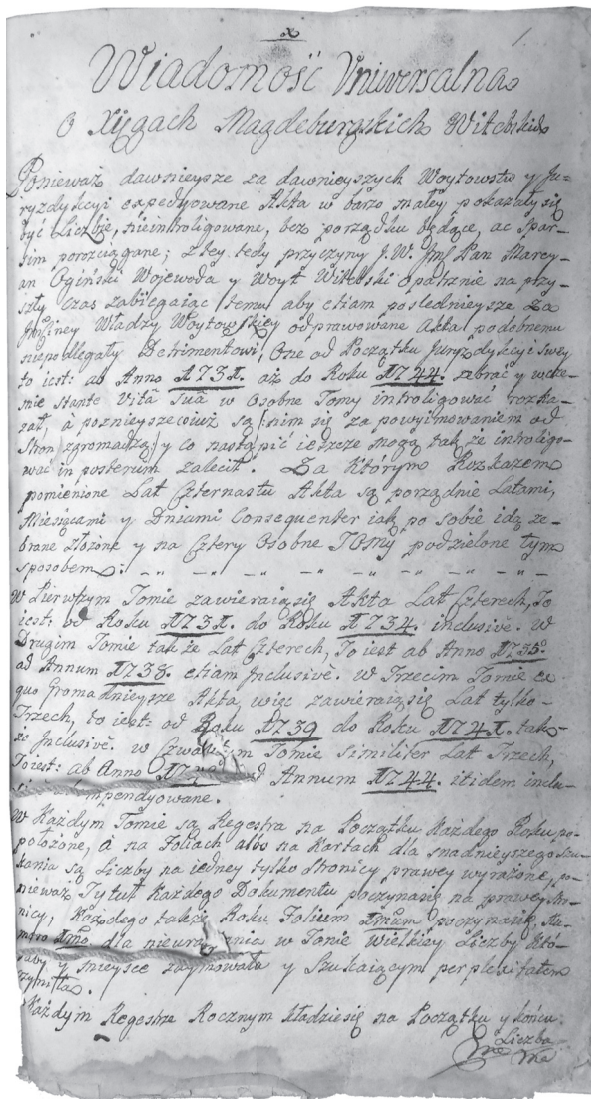 Wiadomość Vniwersalna
o Xięgach Magdeburgskich Witebskich
Ponieważ dawnieysze za dawnieyszych Woytowstw y Ju-
ryzdykcyi expedyowane Akta w barzo małey pokazały się
być Liczbie, nieintroligowane, bez porządku będące, ac spar-
sim porozciągane; z tey tedy przyczyny J.W. Jmć Pan Marcy-
an Ogiński Woiewoda y Woyt Witebski opatrznie na przy-
szły czas zabiegaiąc temu aby etiam poslednieysze za
Władzy Woytowskiey odprawowane Akta podobnemu
niepodlegały Detrimentowi, One od Początku Juryzdykcyi swey
to iest: ab Anno 1731. aż do Roku 1744. zebrać y wcze-
śnie stante Vita sua w osobne Tomy introligować rozka-
zał, a poznieysze co iuż są nim się za powyimowaniem od
Stron zgromadzą y co nastąpić ieszcze mogą także introligo-
wać in posterum zalecił. Za Którym Rozkazem
pomienione Lat Czternastu Akta są porządnie Latami,
Miesiącami y Dniami Consequenter iak po sobie idą ze-
brane złożone y na Cztery Osobne Tomy podzielone tym
sposobem:
w Pierwszym Tomie zawieraią się Akta Lat Czterech, To
iest: od Roku 1731. do Roku 1734. inclusivè. w
Drugim Tomie także Lat Czterech, To iest ab Anno 1735.
ad Annum 1738. etiam Inclusivè. w Trzecim Tomie ex
quo Gromadnieysze Akta, więc zawieraią się Lat tylko
Trzech, to iest: od Roku 1739 do Roku 1741. tak-
że Inclusivè. w Czwartym Tomie similiter Lat Trzech,
To iest: ab Anno Annum 1744. itidem inclu-
kompendyowane.
w Każdym Tomie są Regestra na Początku Każdego Roku po-
położone, a na Foliach albo na Kartach dla snadnieyszego szu-
kania są Liczby na iedney tylko stronicy prawey wyrażone, po-
nieważ Tytuł Każdego Dokumentu poczyna się na prawey stro-
nicy, Każdego także Roku Folium poczyna się, Nu-
mero dla w Tomie wielkiey Liczby któ-
raby y mieysce zaymowała y Szukaiącym perplexitatem
czyniła.
w Każdym Regestrze Rocznym kładzie się na Początku y końcu
Liczba